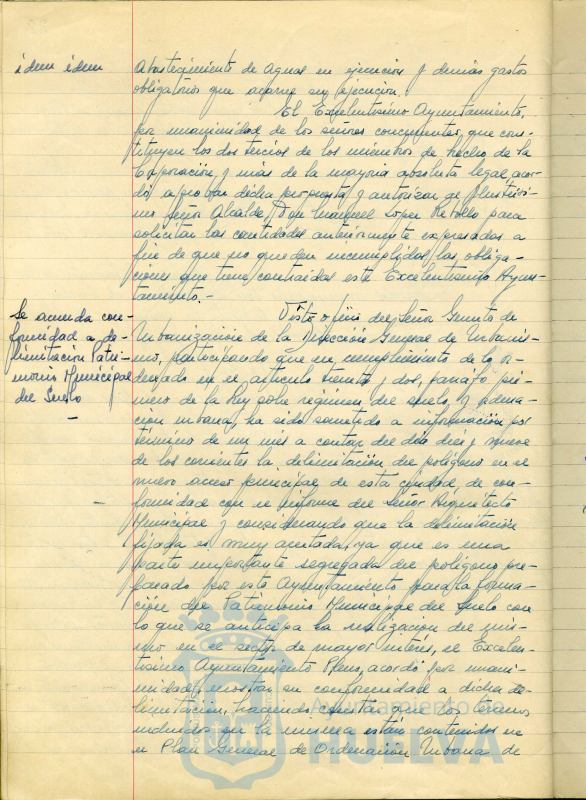 idem idem
Abastecimiento de Aguas en ejecución y demás gastos
obligatorios que acarree su ejecución.
El Excelentísimo Ayuntamiento,
por unanimidad de los señores concurrentes, que cons-
tituyen los dos tercios de los miembros de hecho de la
Corporación y más de la mayoría absoluta legal, acor-
dó aprobar dicha propuesta y autorizar al Ilustrísi-
mo Señor Alcalde, Don Manuel López Rebollo para
solicitar las cantidades anteriormente expresadas a
fin de que no queden incumplidas las obliga-
ciones que tiene contraidas este Excelentísimo Ayun-
tamiento.-
Se acuerda con-
formidad a de-
limitación Patri-
monio Municipal
del Suelo
Visto oficio del Señor Gerente de
Urbanización de la Dirección General de Urbanis-
mo, participando que en cumplimiento de lo or-
denado en el artículo treinta y dos, párrafo pri-
mero de la Ley sobre régimen del suelo y ordena-
ción urbana, ha sido sometido a información por
término de un mes a contar del día diez y nueve
de los corrientes la delimitación del polígono en el
nuevo acceso principal de esta ciudad, de con-
formidad con el informe del Señor Arquitecto
Municipal y considerando que la delimitación
fijada es muy acertada, ya que es una
parte importante segregada del polígono pre-
parado por este Ayuntamiento para la forma-
ción del Patrimonio Municipal del Suelo con
lo que se anticipa la realización del mis-
mo en el sector de mayor interés, el Excelen-
tísimo Ayuntamiento Pleno, acordó por unani-
midad, mostrar su conformidad a dicha de-
limitación, haciendo constar que los terrenos
incluidos en la misma están contenidos en
el Plan General de Ordenación Urbana de
Ayuntamiento de
HUELVA